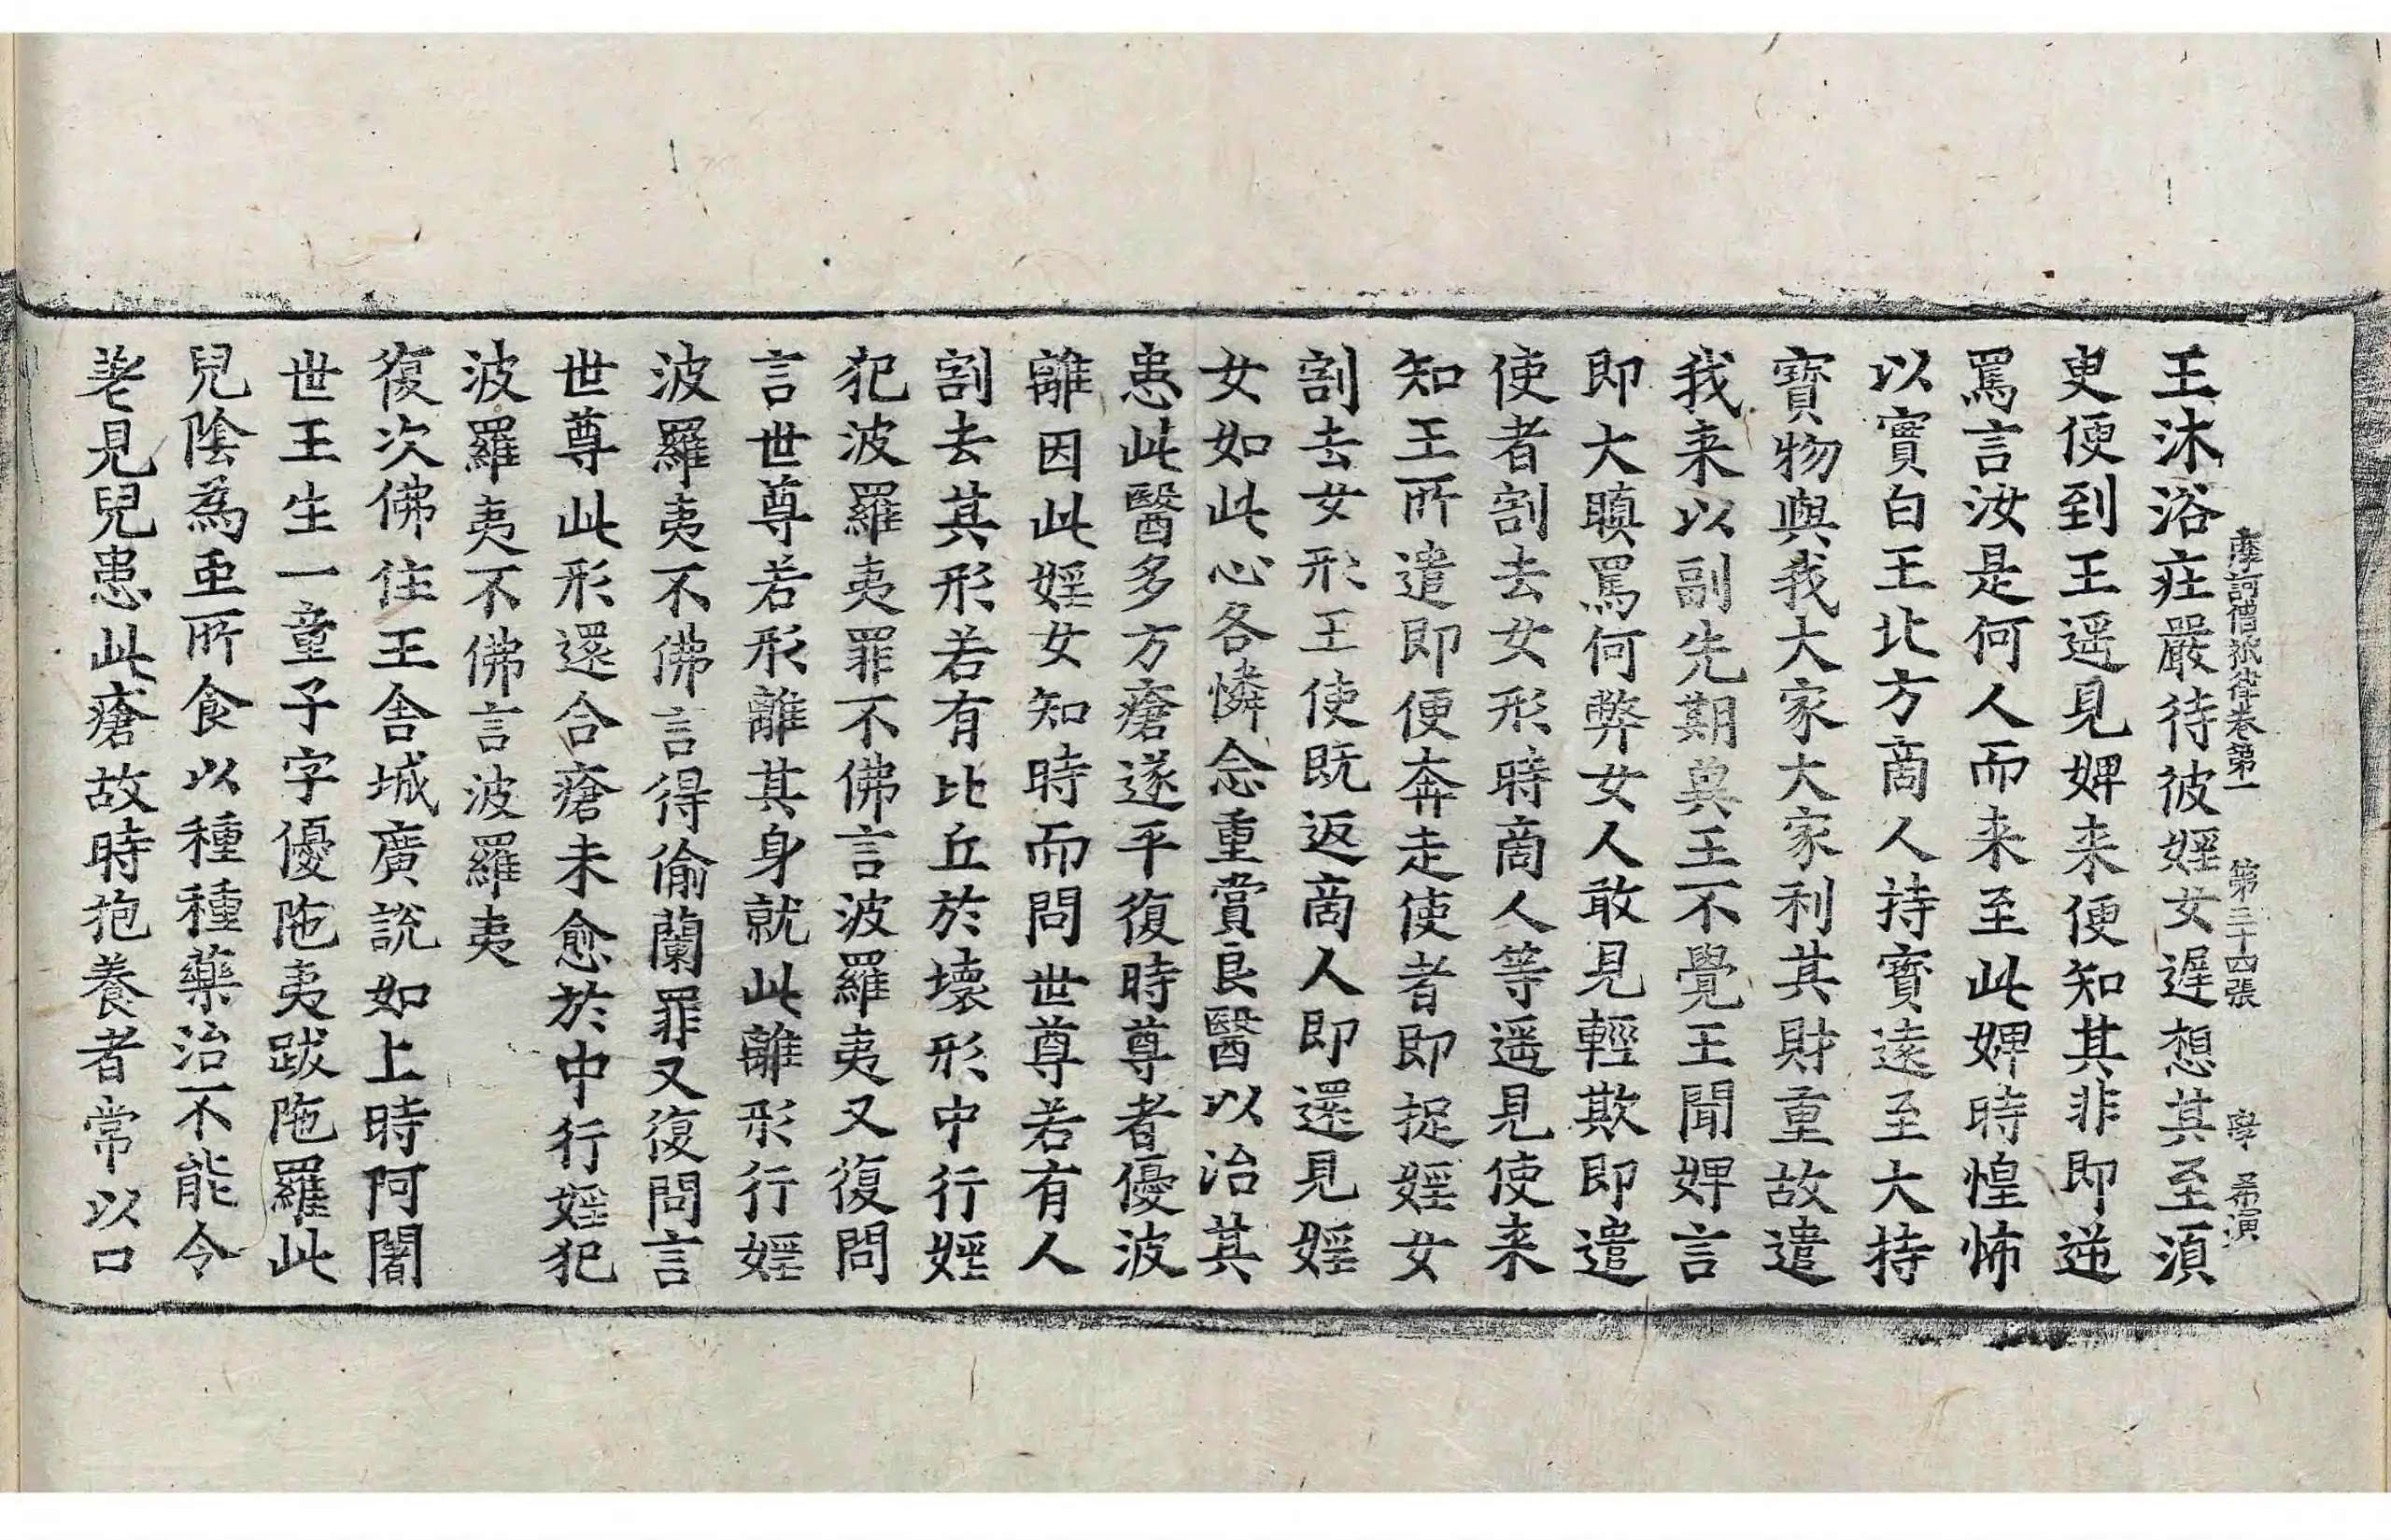 摩訶僧祇律卷第一 第三十四張 學 希演
王沐浴莊嚴待彼婬女遲想其至須
臾便到王遥見婢来便知其非即逆
罵言汝是何人而来至此婢時惶怖
以實白王北方商人持寶遠至大持
寶物與我大家大家利其財重故遣
我来以副先期兾王不覺王聞婢言
即大瞋罵何弊女人敢見輕欺即遣
使者割去女形時商人等遥見使来
知王所遣即便奔走使者即捉婬女
割去女形王使既返商人即還見婬
女如此心各憐念重賞良醫以治其
患此醫多方瘡遂平復時尊者優波
離因此婬女知時而問世尊若有人
割去其形若有比丘於壞形中行婬
犯波羅夷罪不佛言波羅夷又復問
言世尊若形離其身就此離形行婬
波羅夷不佛言得偷蘭罪又復問言
世尊此形還合瘡未愈於中行婬犯
波羅夷不佛言波羅夷
復次佛住王舍城廣說如上時阿闍
世王生一童子字優陁夷跋陁羅此
兒陰為䖝所食以種種藥治不能令
差見兒患此瘡故時抱養者常以口